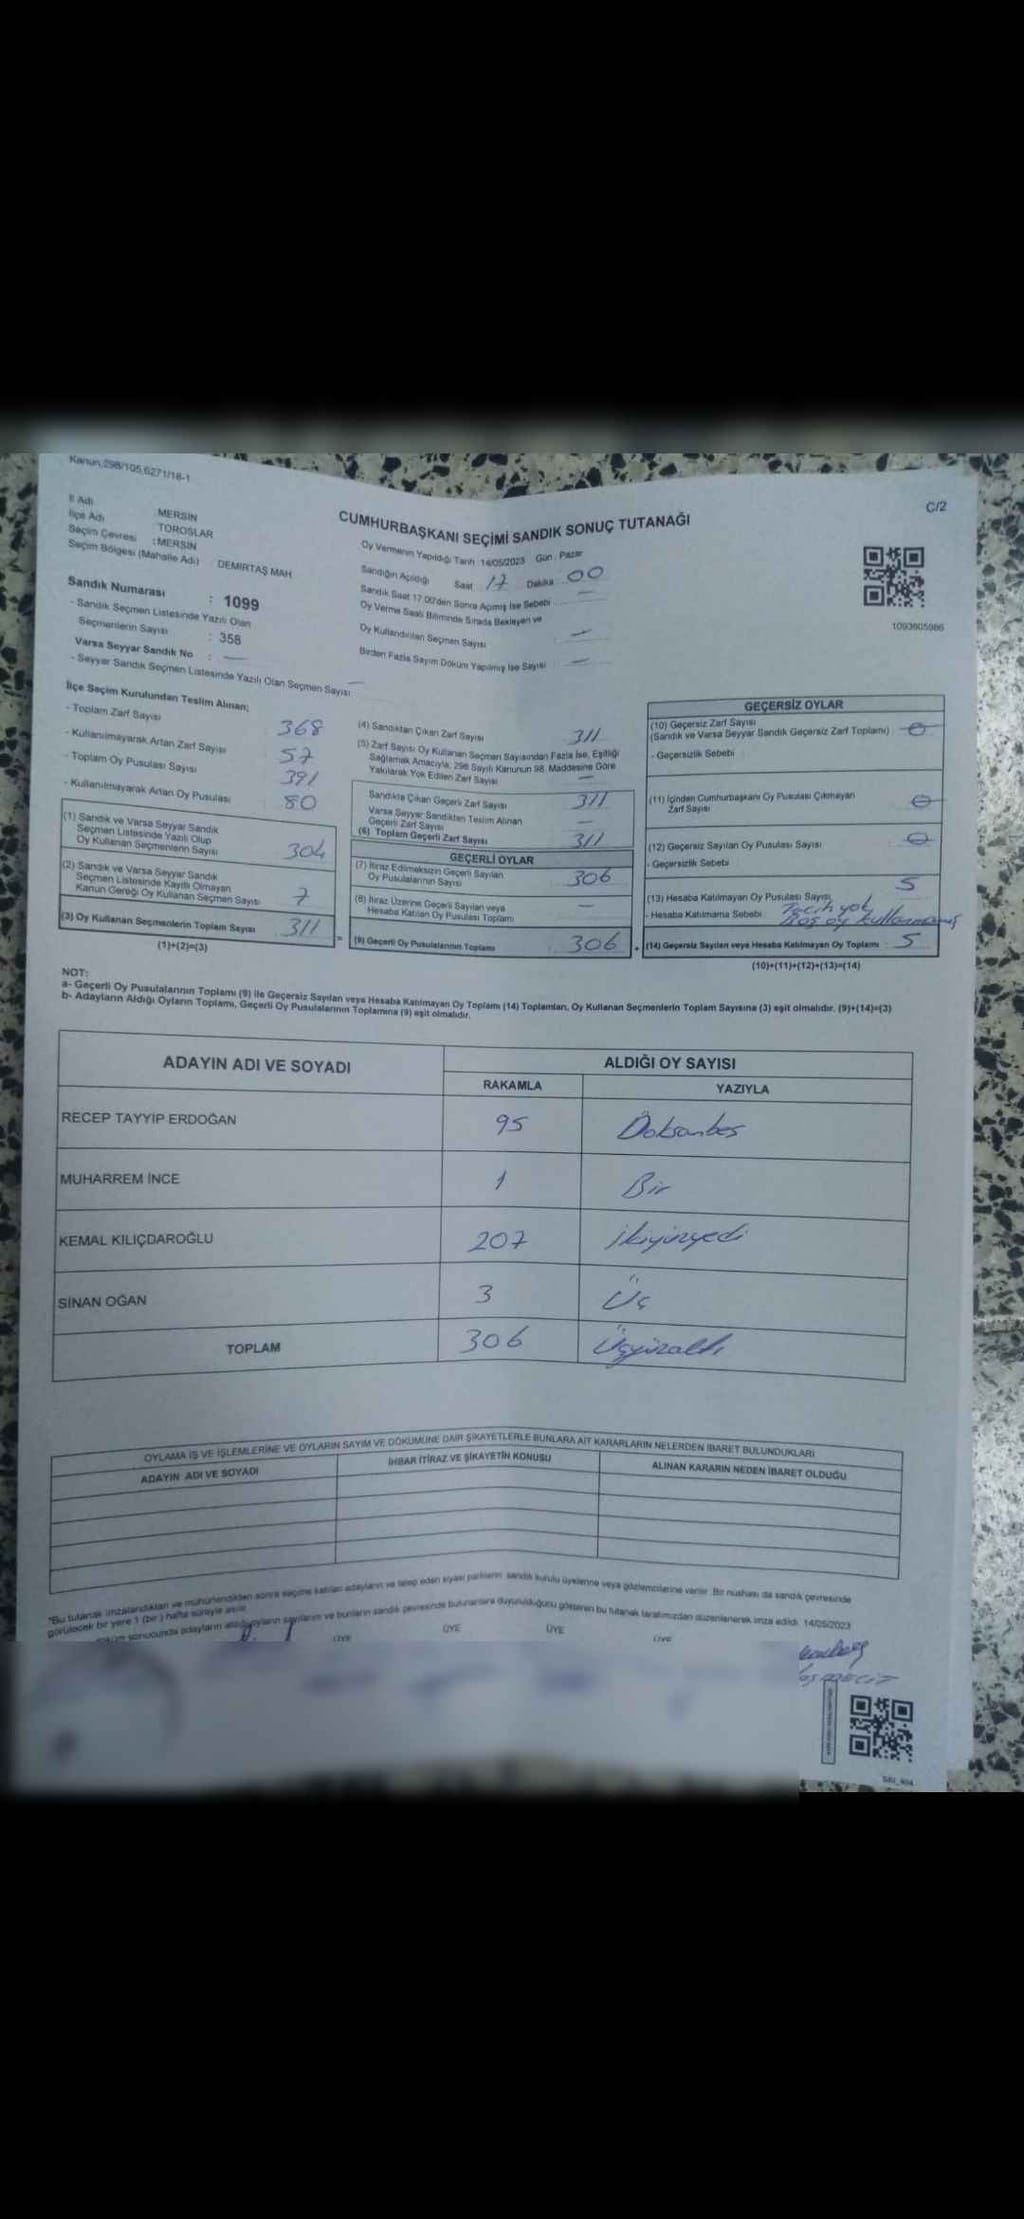 Kanun,298/105,6271/18-1
C/2
CUMHURBAŞKANI SEÇİMİ SANDIK SONUÇ TUTANAĞI
İl Adı MERSİN
İlçe Adı TOROSLAR
Seçim Çevresi :MERSİN
Seçim Bölgesi (Mahalle Adı) : DEMİRTAŞ MAH
Sandık Numarası : 1099
- Sandık Seçmen Listesinde Yazılı Olan
Seçmenlerin Sayısı : 358
Varsa Seyyar Sandık No : —
- Seyyar Sandık Seçmen Listesinde Yazılı Olan Seçmen Sayısı —
Oy Vermenin Yapıldığı Tarih 14/05/2023 Gün : Pazar
Sandığın Açıldığı Saat 17 Dakika 00
Sandık Saat 17:00'den Sonra Açımış İse Sebebi —
Oy Verme Saati Bitiminde Sırada Bekleyen ve
Oy Kullandırılan Seçmen Sayısı —
Birden Fazla Sayım Döküm Yapılmış İse Sayısı —
1093605986
İlçe Seçim Kurulundan Teslim Alınan;
- Toplam Zarf Sayısı 368
- Kullanılmayarak Artan Zarf Sayısı 57
- Toplam Oy Pusulası Sayısı 391
- Kullanılmayarak Artan Oy Pusulası 80
(1) Sandık ve Varsa Seyyar Sandık
Seçmen Listesinde Yazılı Olup
Oy Kullanan Seçmenlerin Sayısı 304
(2) Sandık ve Varsa Seyyar Sandık
Seçmen Listesinde Kayıtlı Olmayan
Kanun Gereği Oy Kullanan Seçmen Sayısı 7
(3) Oy Kullanan Seçmenlerin Toplam Sayısı 311
(1)+(2)=(3)
(4) Sandıktan Çıkan Zarf Sayısı 311
(5) Zarf Sayısı Oy Kullanan Seçmen Sayısından Fazla İse, Eşitliği
Sağlamak Amacıyla, 298 Sayılı Kanunun 98. Maddesine Göre
Yakılarak Yok Edilen Zarf Sayısı —
Sandıkta Çıkan Geçerli Zarf Sayısı 311
Varsa Seyyar Sandıktan Teslim Alınan
Geçerli Zarf Sayısı —
(6) Toplam Geçerli Zarf Sayısı 311
GEÇERLİ OYLAR
(7) İtiraz Edilmeksizin Geçerli Sayılan
Oy Pusulalarının Sayısı 306
(8) İtiraz Üzerine Geçerli Sayılan veya
Hesaba Katılan Oy Pusulası Toplamı —
= (9) Geçerli Oy Pusulalarının Toplamı 306
GEÇERSİZ OYLAR
(10) Geçersiz Zarf Sayısı
(Sandık ve Varsa Seyyar Sandık Geçersiz Zarf Toplamı) 0
- Geçersizlik Sebebi
(11) İçinden Cumhurbaşkanı Oy Pusulası Çıkmayan
Zarf Sayısı 0
(12) Geçersiz Sayılan Oy Pusulası Sayısı 0
- Geçersizlik Sebebi
(13) Hesaba Katılmayan Oy Pusulası Sayısı 5
- Hesaba Katılmama Sebebi Tercih yok
Boş oy kullanmamış
+ (14) Geçersiz Sayılan veya Hesaba Katılmayan Oy Toplamı 5
(10)+(11)+(12)+(13)=(14)
NOT:
a- Geçerli Oy Pusulalarının Toplamı (9) ile Geçersiz Sayılan veya Hesaba Katılmayan Oy Toplamı (14) Toplamları, Oy Kullanan Seçmenlerin Toplam Sayısına (3) eşit olmalıdır. (9)+(14)=(3)
b- Adayların Aldığı Oyların Toplamı, Geçerli Oy Pusulalarının Toplamına (9) eşit olmalıdır.
ADAYIN ADI VE SOYADI ALDIĞI OY SAYISI
RAKAMLA YAZIYLA
RECEP TAYYİP ERDOĞAN 95 Doksanbeş
MUHARREM İNCE 1 Bir
KEMAL KILIÇDAROĞLU 207 İkiyüzyedi
SİNAN OĞAN 3 Üç
TOPLAM 306 Üçyüzaltı
OYLAMA İŞ VE İŞLEMLERİNE VE OYLARIN SAYIM VE DÖKÜMÜNE DAİR ŞİKAYETLERLE BUNLARA AİT KARARLARIN NELERDEN İBARET BULUNDUKLARI
ADAYIN ADI VE SOYADI İHBAR İTİRAZ VE ŞİKAYETİN KONUSU ALINAN KARARIN NEDEN İBARET OLDUĞU
"Bu tutanak imzalandıktan ve mühürlendikten sonra seçime katılan adayların ve talep eden siyasi partilerin sandık kurulu üyelerine veya gözlemcilerine verilir. Bir nüshası da sandık çevresinde
görülecek bir yere 1 (bir) hafta süreyle asılır.
sonucunda adayların aldığı oyların sayılarını ve bunların sandık çevresinde bulunanlara duyurulduğunu gösteren bu tutanak tarafımızdan düzenlenerek imza edildi. 14/05/2023
ÜYE ÜYE ÜYE ÜYE